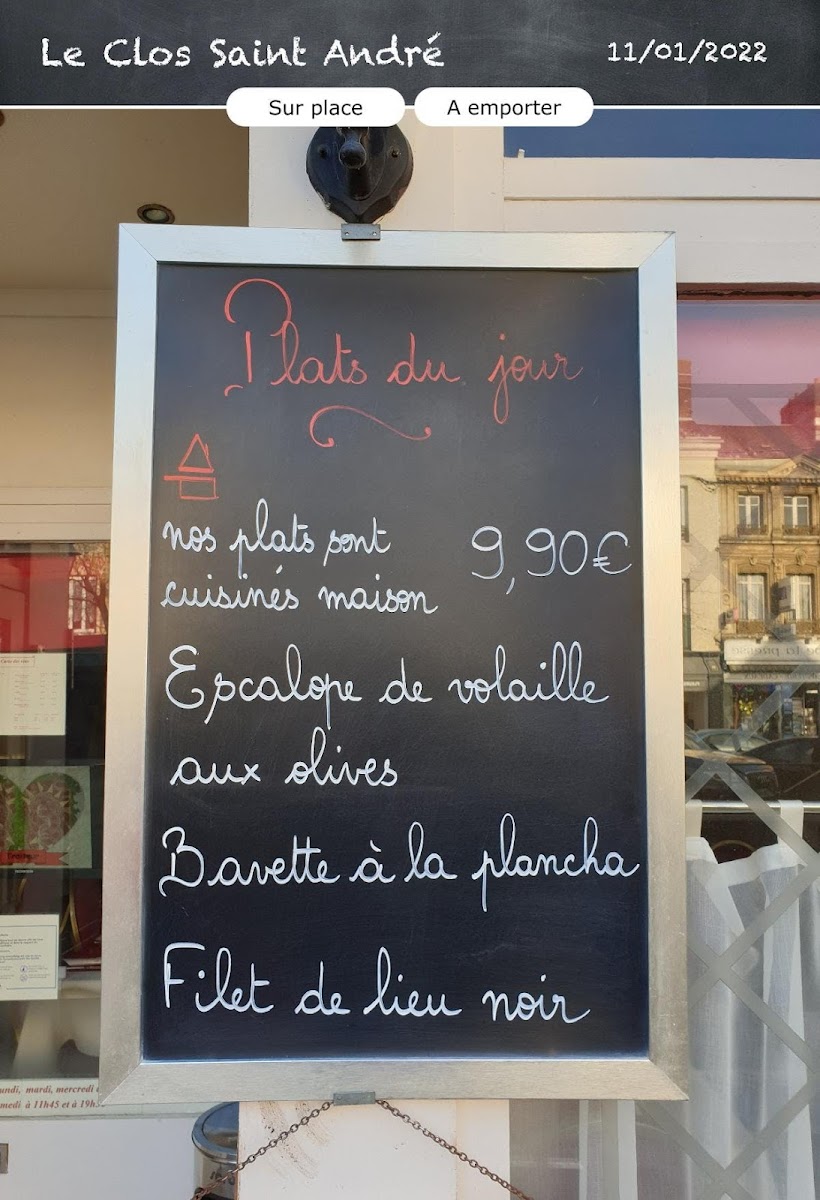 Le Clos Saint André 11/01/2022
Sur place A emporter
Plats du jour
nos plats sont 9,90€
cuisinés maison
Escalope de volaille
aux olives
Bavette à la plancha
Filet de lieu noir
mardi, mercredi
à 11h45 et à